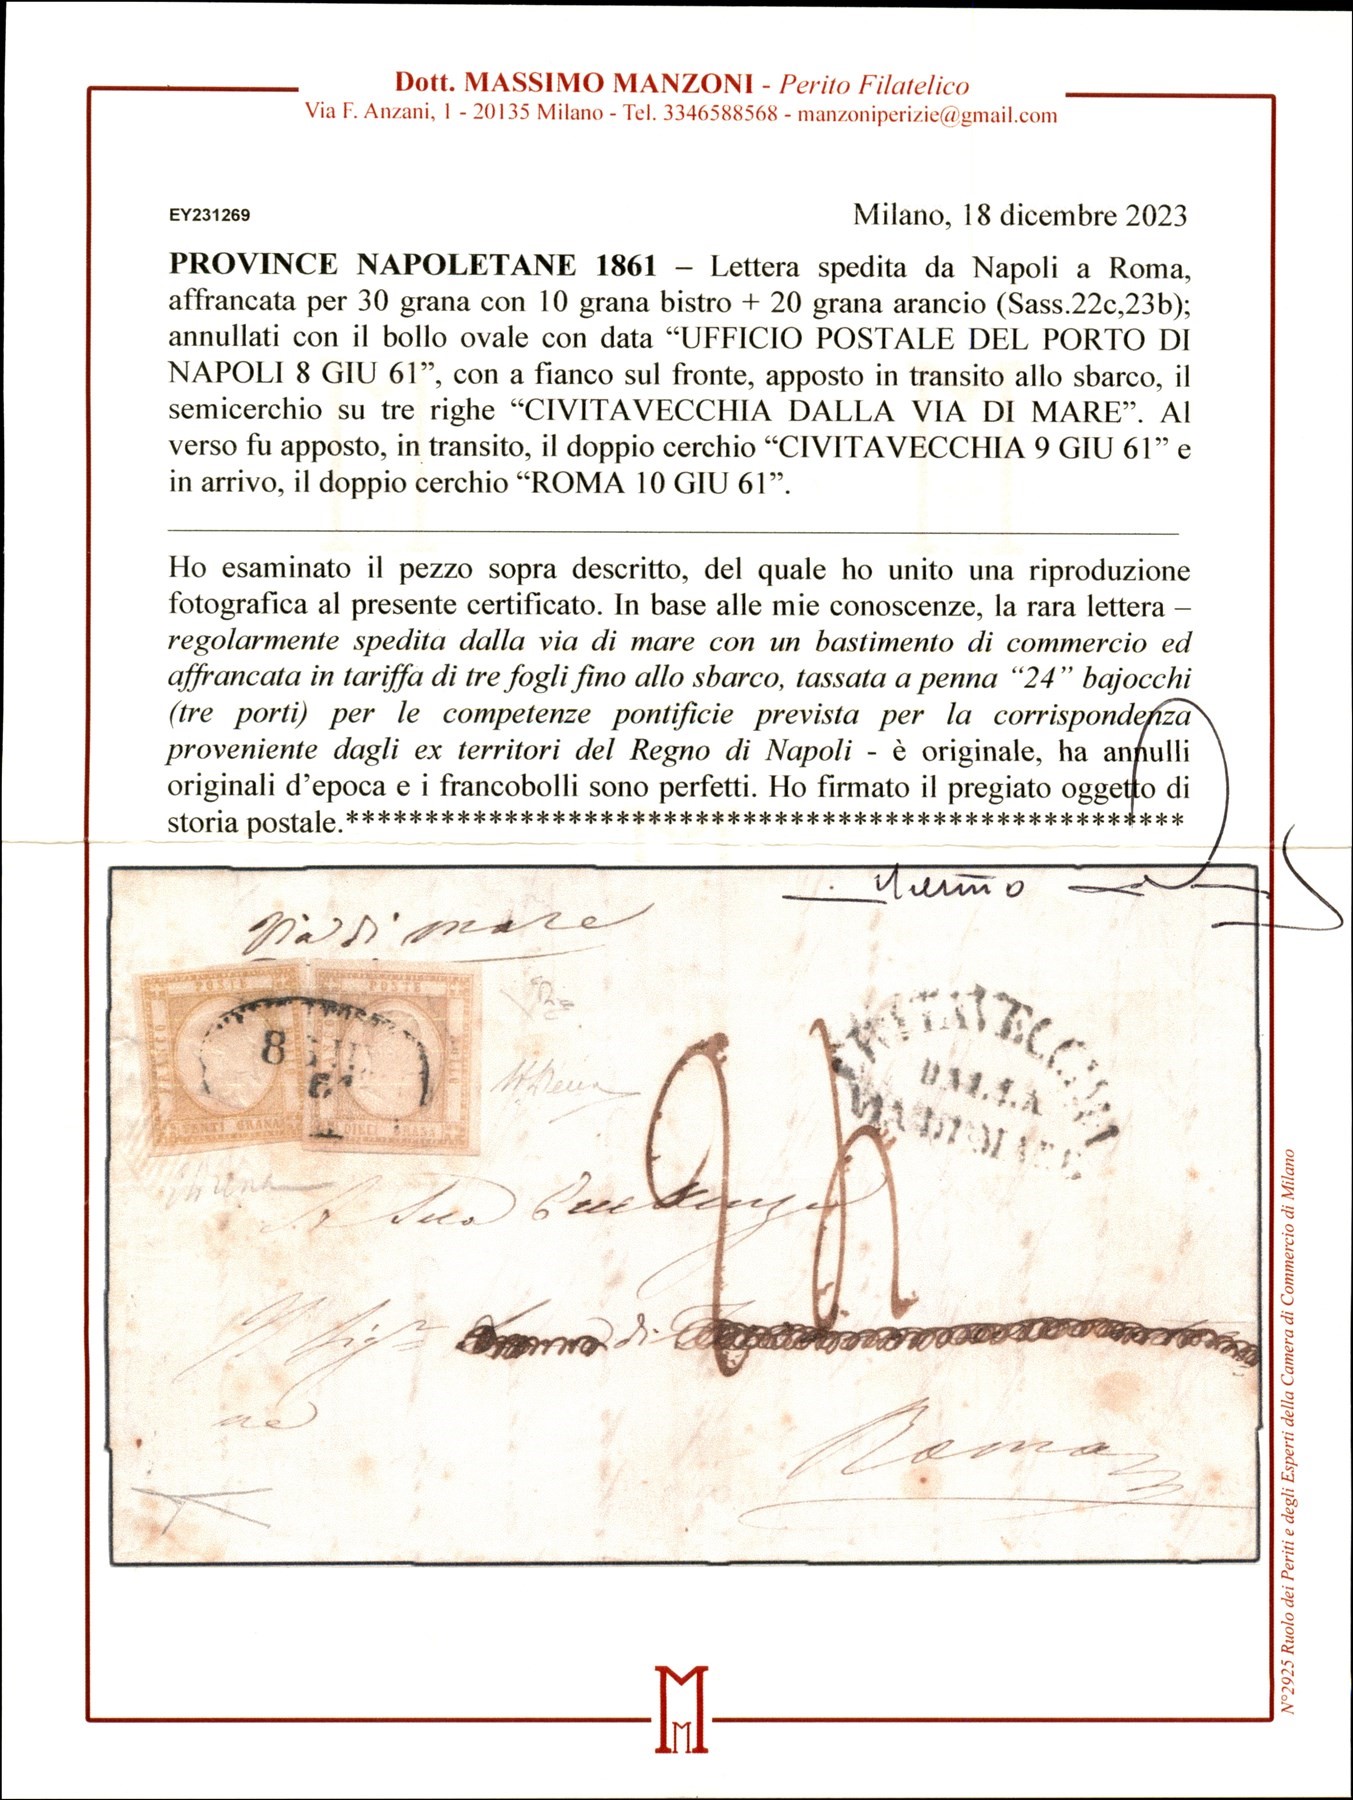 Dott. MASSIMO MANZONI - Perito Filatelico
Via F. Anzani, 1 - 20135 Milano - Tel. 3346588568 - manzoniperizie@gmail.com
EY231269
Milano, 18 dicembre 2023
PROVINCE NAPOLETANE 1861 – Lettera spedita da Napoli a Roma,
affrancata per 30 grana con 10 grana bistro + 20 grana arancio (Sass.22c,23b);
annullati con il bollo ovale con data “UFFICIO POSTALE DEL PORTO DI
NAPOLI 8 GIU 61”, con a fianco sul fronte, apposto in transito allo sbarco, il
semicerchio su tre righe “CIVITAVECCHIA DALLA VIA DI MARE”. Al
verso fu apposto, in transito, il doppio cerchio “CIVITAVECCHIA 9 GIU 61” e
in arrivo, il doppio cerchio “ROMA 10 GIU 61”.
Ho esaminato il pezzo sopra descritto, del quale ho unito una riproduzione
fotografica al presente certificato. In base alle mie conoscenze, la rara lettera –
regolarmente spedita dalla via di mare con un bastimento di commercio ed
affrancata in tariffa di tre fogli fino allo sbarco, tassata a penna “24” bajocchi
(tre porti) per le competenze pontificie prevista per la corrispondenza
proveniente dagli ex territori del Regno di Napoli - è originale, ha annulli
originali d’epoca e i francobolli sono perfetti. Ho firmato il pregiato oggetto di
storia postale.*****************************************************
Via di mare
POSTE
POSTE
FRANCO
8 GIU
61
VENTI GRANA
DIECI GRANA
24
CIVITAVECCHIA
DALLA
VIA DI MARE
A Sua Eccellenza
di
Roma
N°2925 Ruolo dei Periti e degli Esperti della Camera di Commercio di Milano
M
M